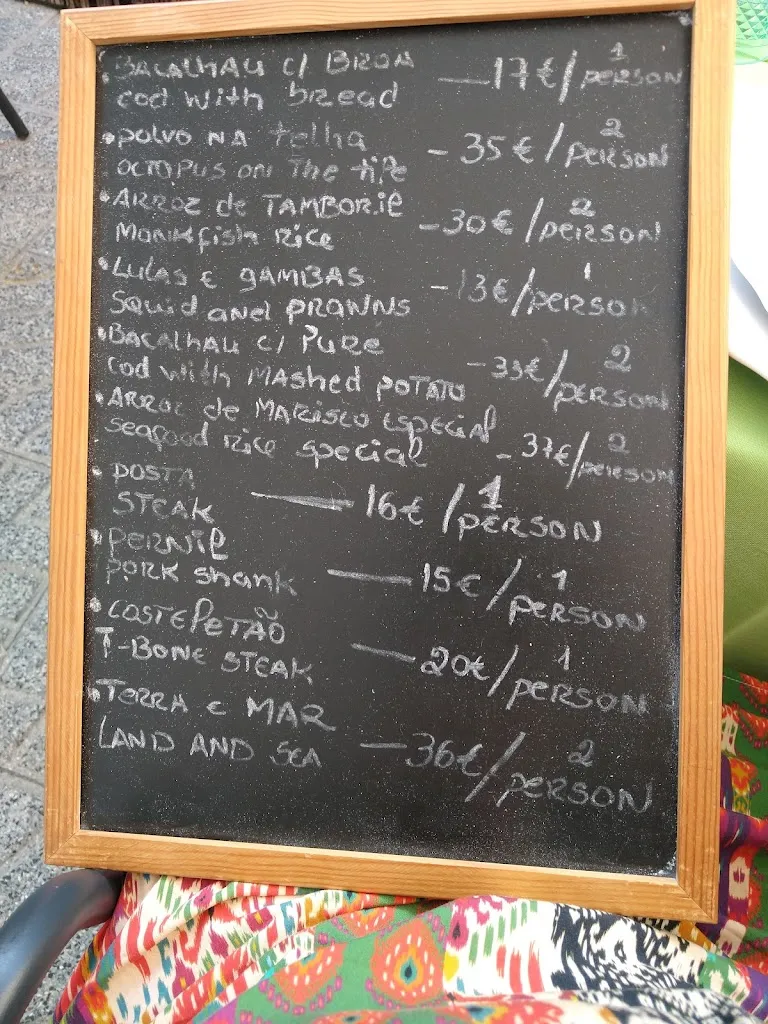 • BACALHAU c/ BROA
cod with bread — 17€ / 1 person
• POLVO NA telha
OCTOPUS on The tile - 35€ / 2 person
• ARROZ de TAMBORIL
Monkfish Rice - 30€ / 2 person
• LULAS E gAMBAS
Squid and PRAWNS - 13€ / 1 person
• BACALHAU c/ PURE
cod with MAShed POTATO - 33€ / 2 person
• ARROZ de MARISCO ESPECIAL
seafood rice special - 37€ / 2 person
• POSTA
STEAK — 16€ / 1 person
• PERNIL
PORK shank — 15€ / 1 person
• COSTELETÃO
T-BONE STEAK — 20€ / 1 person
• TERRA E MAR
LAND AND SEA — 36€ / 2 person